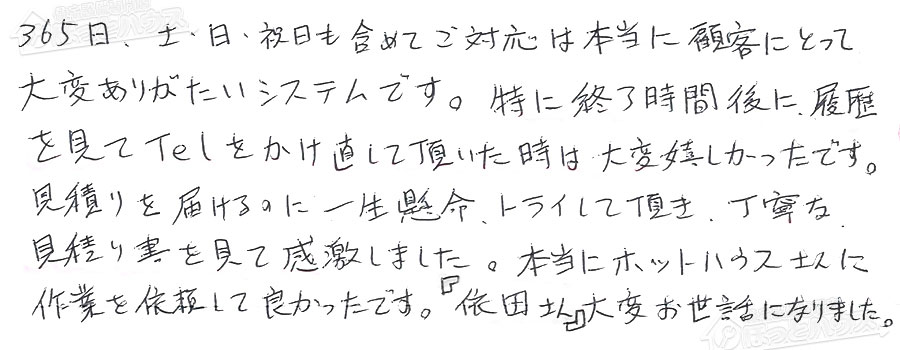 365日、土・日・祝日も含めてご対応は本当に顧客にとって
大変ありがたいシステムです。特に終了時間後に、履歴
を見てTelをかけ直して頂いた時は大変嬉しかったです。
見積りを届けるのに一生懸命、トライして頂き、丁寧な
見積り書を見て感激しました。本当にホットハウスさんに
作業を依頼して良かったです。『依田さん』大変お世話になりました。